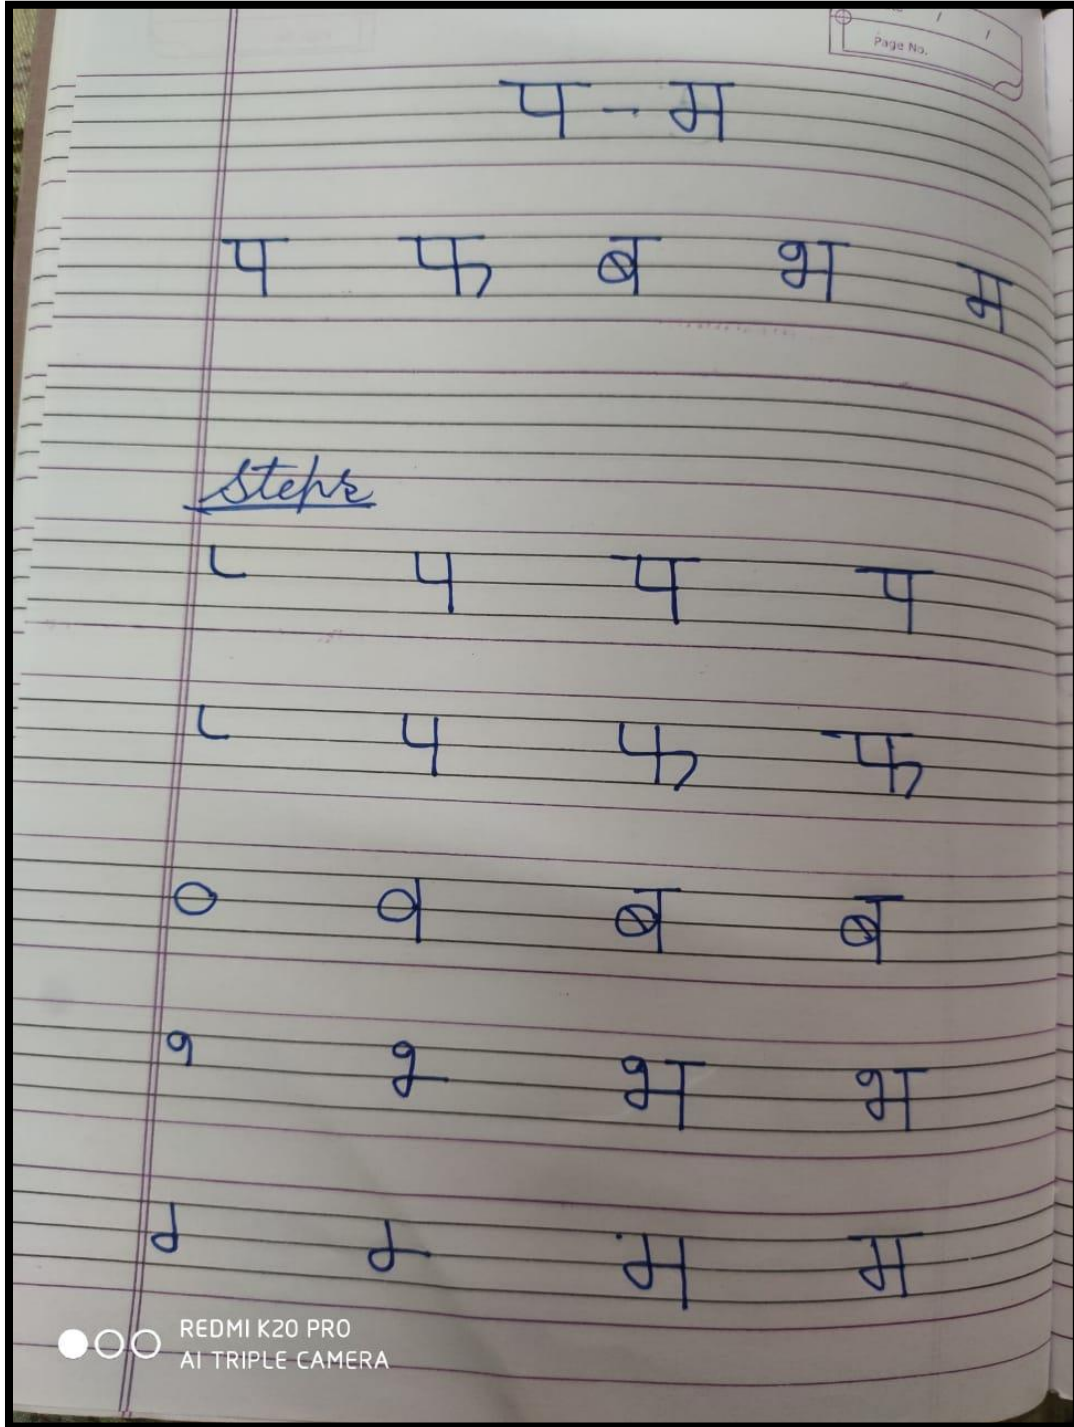 Page No.
प - म
प फ ब भ म
Steps
५ प प
५ फ फ
० व ब ब
१ भ भ
म म
REDMI K20 PRO
AI TRIPLE CAMERA